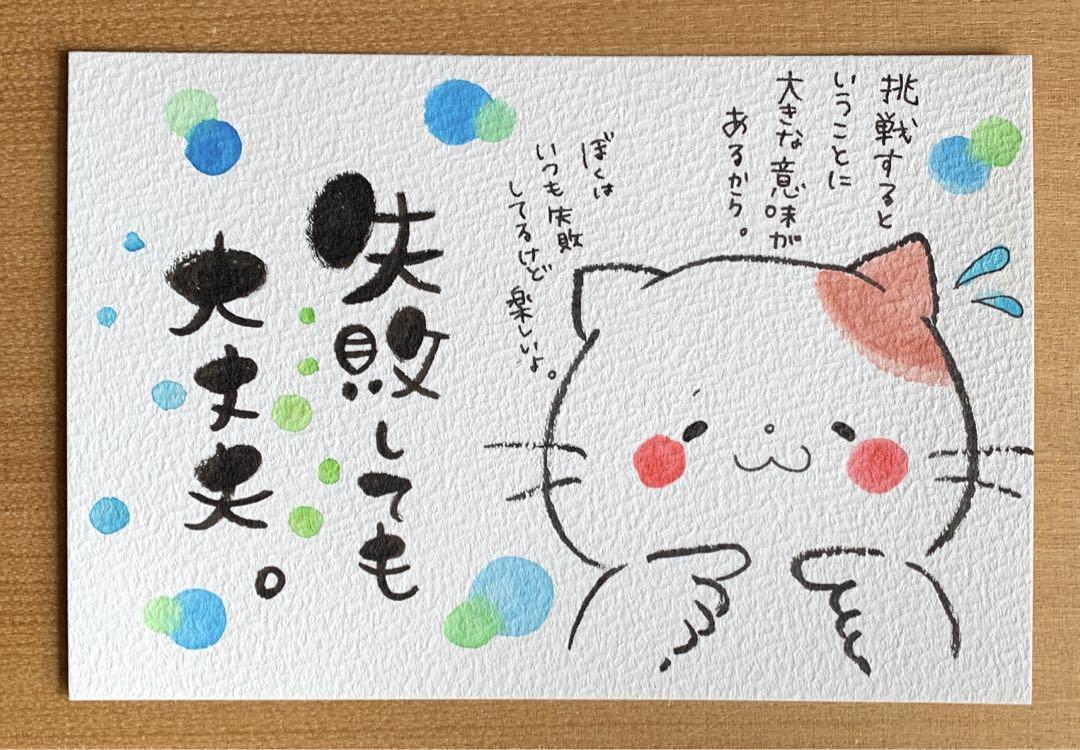 挑戦すると
いうことに
大きな意味が
あるから。
ぼくは
いつも失敗
してるけど
楽しいよ。
失敗しても
大丈夫。